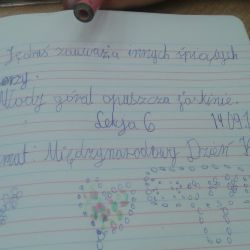 Jędruś zauważa innych śpiących
orzy.
Młody góral opuszcza jaskinię.
Lekcja 6 14/09
mat: Międzynarodowy Dzień K